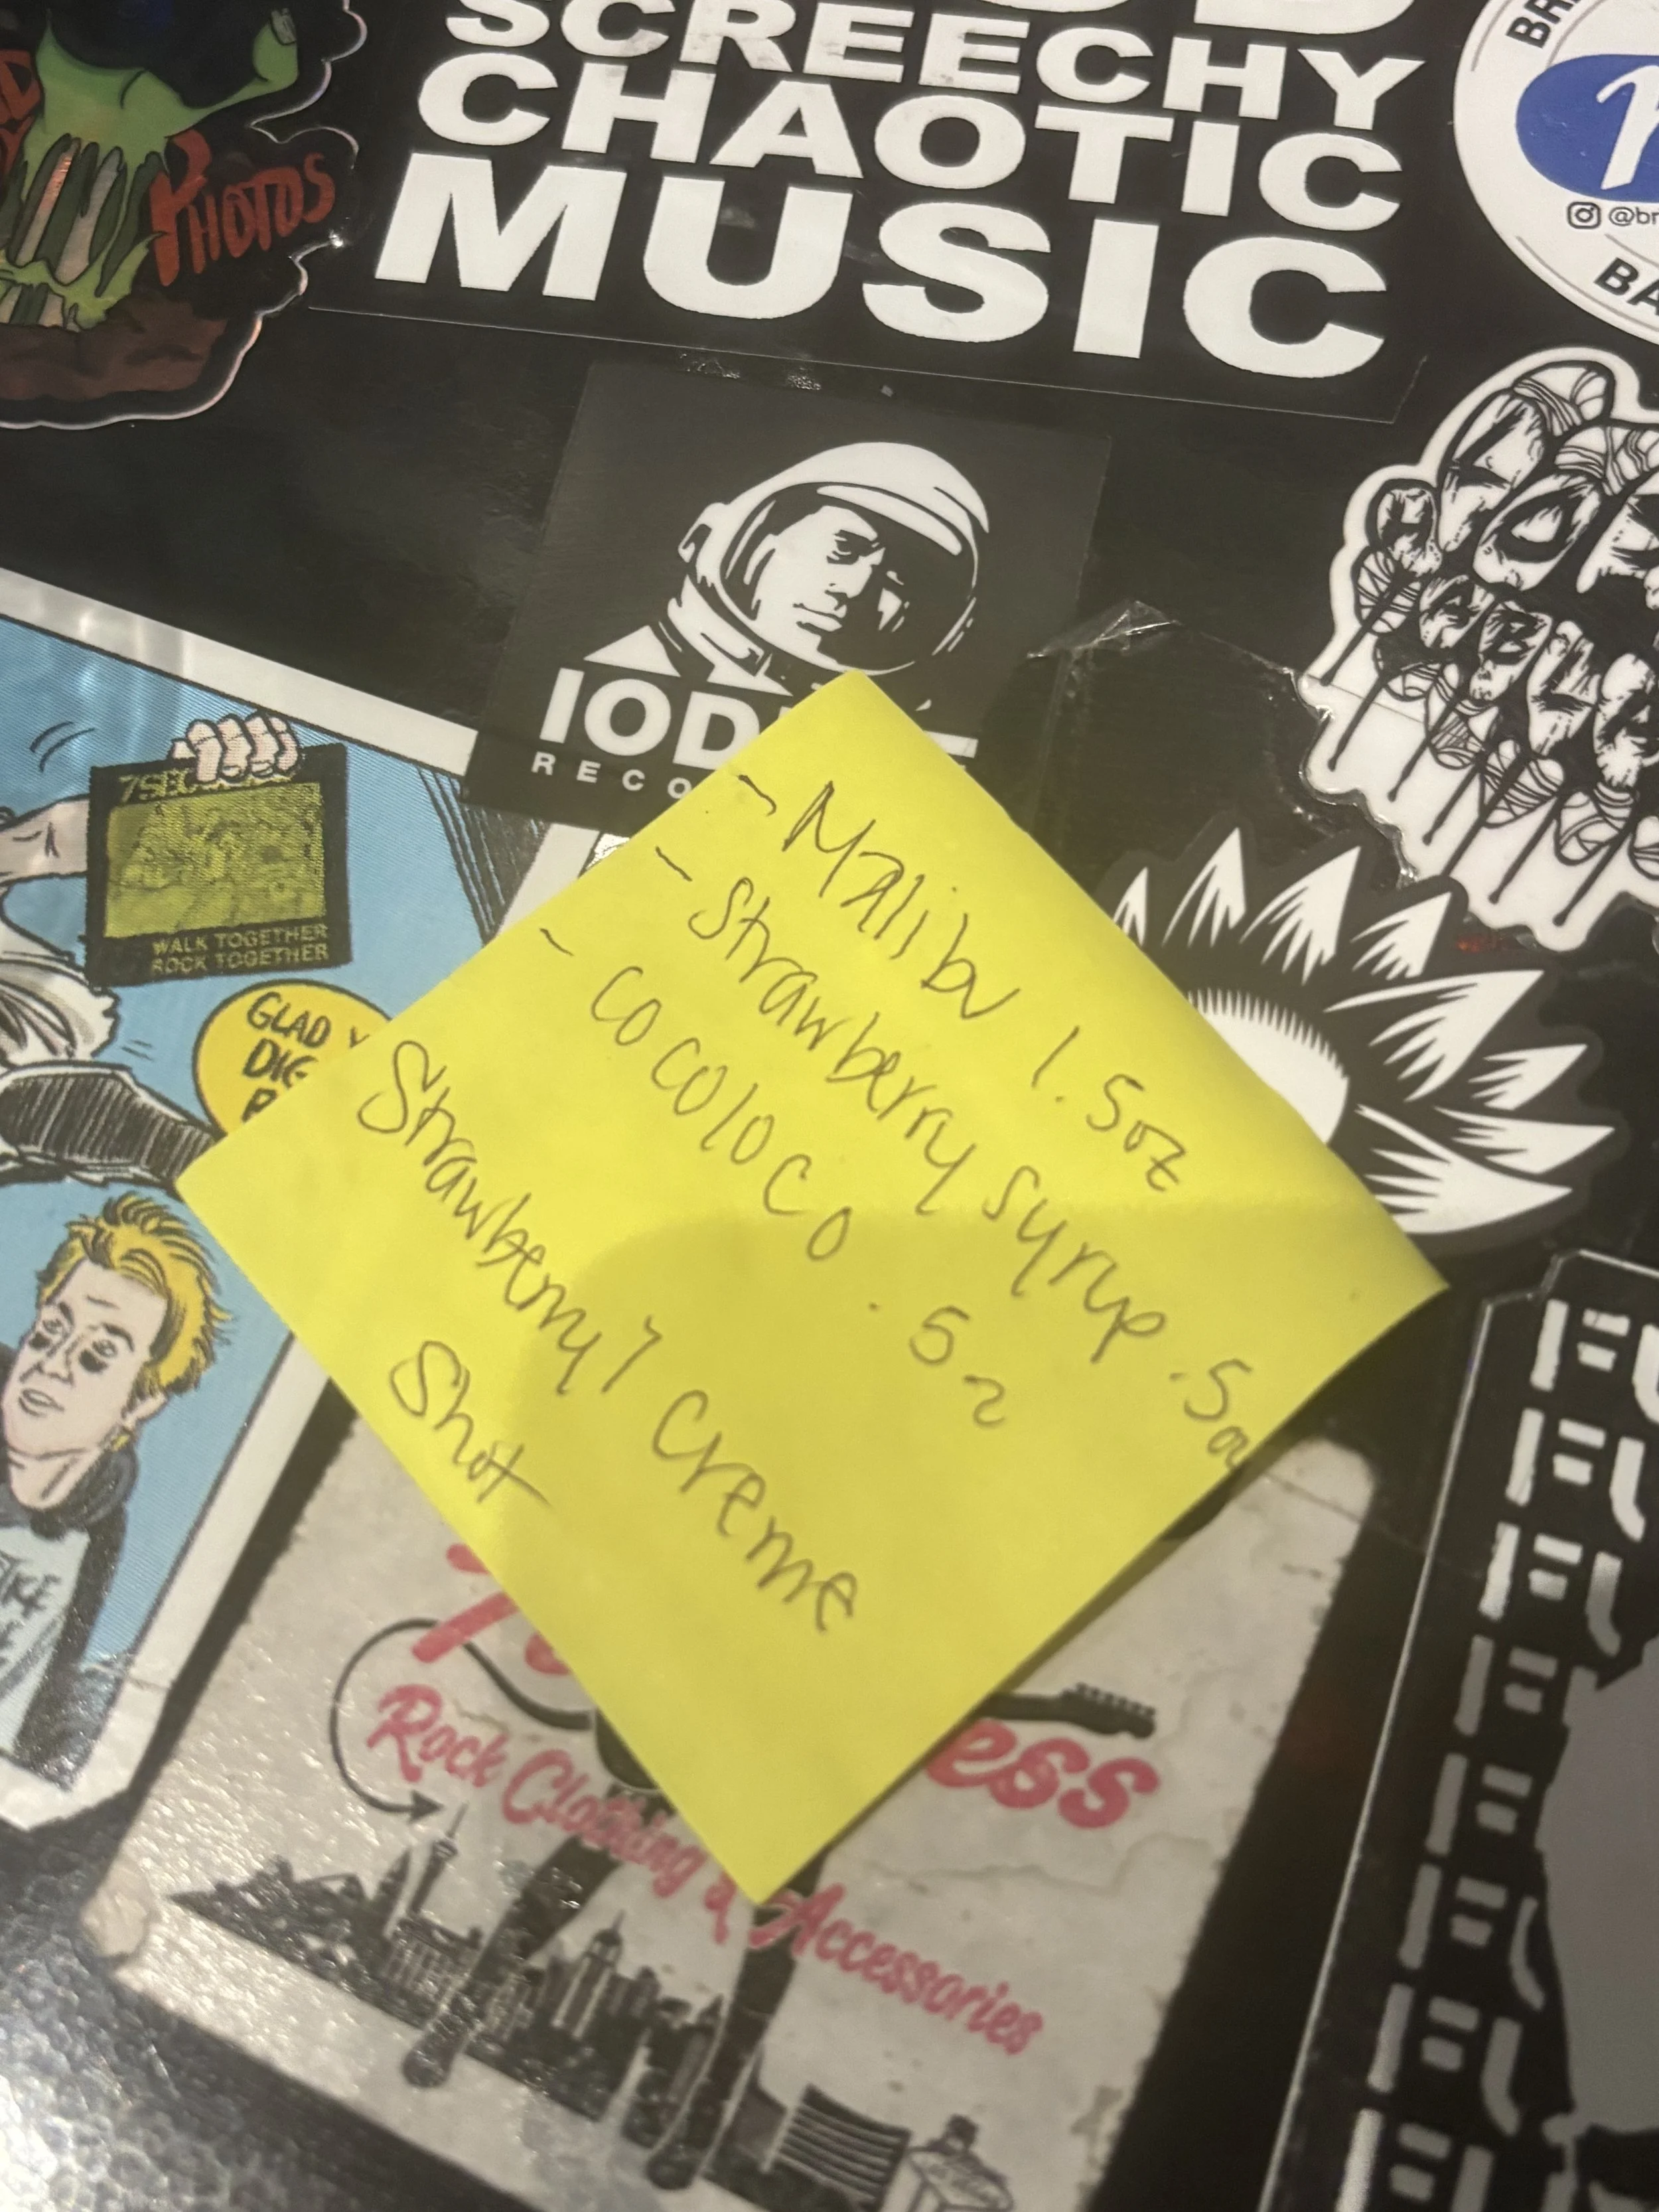 SCREECHY
CHAOTIC
MUSIC
PHOTOS
BA
@br
IOD
RECO
7SEC
WALK TOGETHER
ROCK TOGETHER
GLAD Y
DIG
- Malibu 1.5oz
- Strawberry syrup .5oz
- cocoloco .5z
Strawberry Creme
Shot
ess
Rock Clothing & Accessories